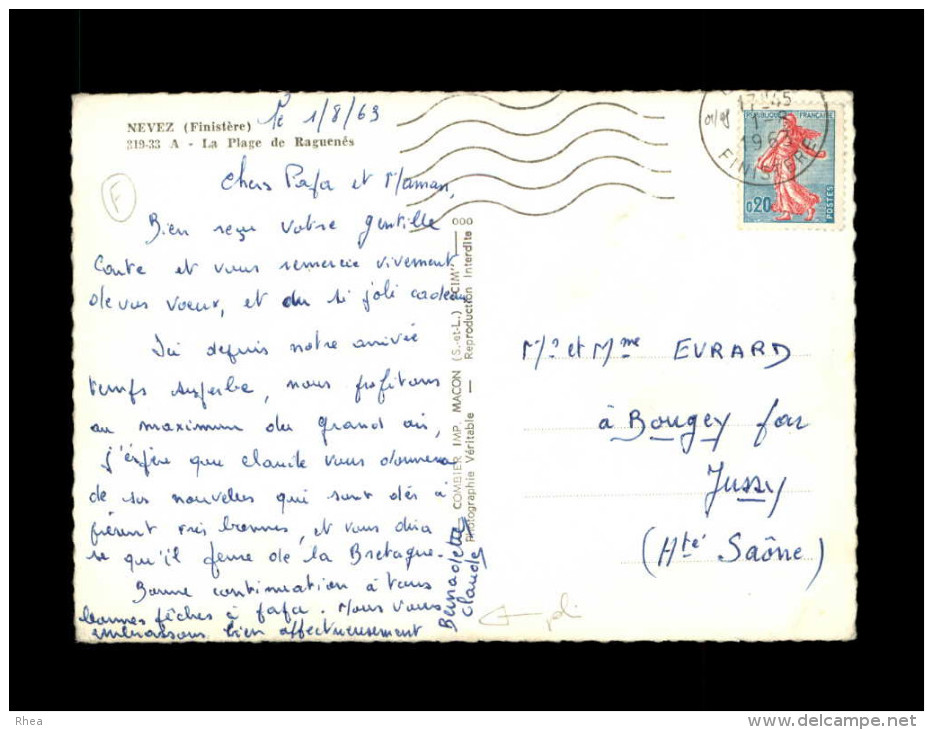 NEVEZ (Finistère)
319-33 A - La Plage de Raguenés
le 1/8/63
Chers Papa et Maman,
Bien reçu votre gentille
Carte et vous remercie vivement
de vos voeux, et du si joli cadeau
Ici depuis notre arrivée
temps superbe, nous profitons
au maximum du grand air,
j'espère que Claude vous donnera
de ses nouvelles qui sont dès à
présent très bonnes, et vous dira
ce qu'il pense de la Bretagne.
Bonne continuation à tous
bonnes pêches à papa. Nous vous
embrassons bien affectueusement
Bernadette
Claude
COMBIER IMP. MACON (S.-et-L.) "CIM"
Photographie Véritable — Reproduction Interdite
000
F
17H45
1-8
1963
FINISTERE
REPUBLIQUE FRANÇAISE
0,20
POSTES
Mr et Mme EVRARD
à Bougey par
Jussey
(Hte Saône)
Rhea
www.delcampe.net